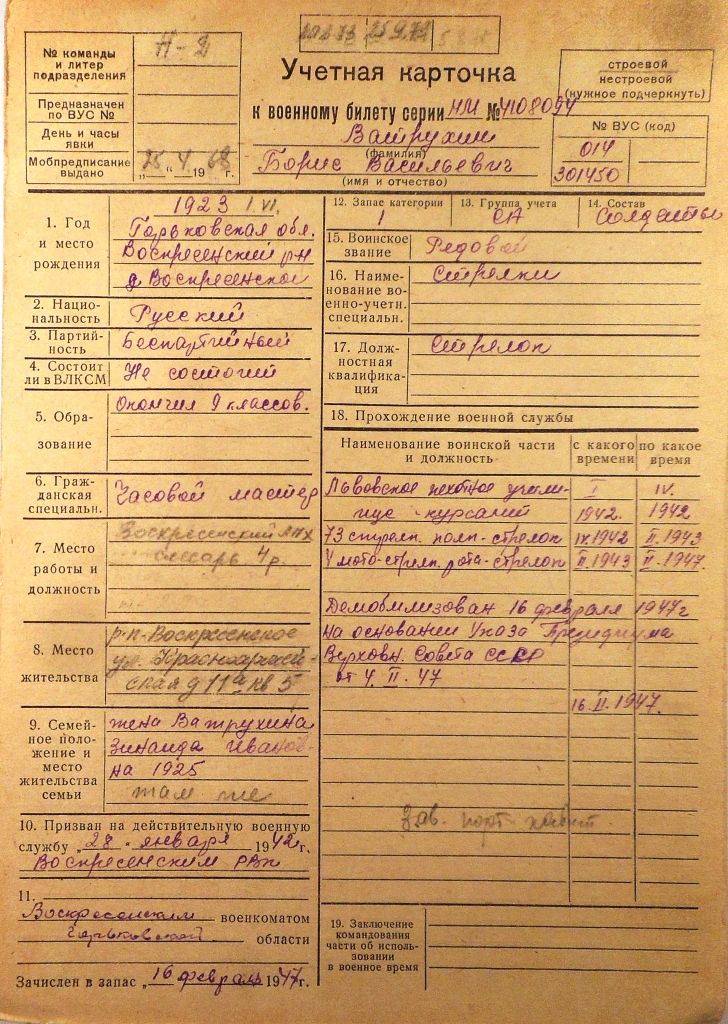 25.9.73
№ команды
и литер
подразделения
Н-2
Предназначен
по ВУС №
День и часы
явки
Мобпредписание
выдано
„25“ 4 1968 г.
Учетная карточка
к военному билету серии НИ № 4108094
Ватрухин
(фамилия)
Борис Васильевич
(имя и отчество)
строевой
нестроевой
(нужное подчеркнуть)
№ ВУС (код)
014
301450
1. Год
и место
рождения
1923 1.VI.
Горьковская обл.
Воскресенский р-н
д Воскресенское
2. Нацио-
нальность
Русский
3. Партий-
ность
Беспартийный
4. Состоит
ли в ВЛКСМ
Не состоит
5. Обра-
зование
Окончил 9 классов.
6. Граж-
данская
специальн.
Часовой мастер
7. Место
работы и
должность
Воскресенский ЛПХ
слесарь 4 р.
8. Место
жительства
р-п-Воскресенское
ул. Красноармей-
ская д 11а кв 5
9. Семей-
ное поло-
жение и
место
жительства
семьи
жена Ватрухина
Зинаида Иванов-
на 1925
там же
10. Призван на действительную военную
службу „28“ января 1942 г,
Воскресенским РВК
11.
Воскресенским военкоматом
Горьковской области
Зачислен в запас „16 февраля 1947 г.
12. Запас категории
1
13. Группа учета
СА
14. Состав
Солдаты
15. Воинское
звание
Рядовой
16. Наиме-
нование во-
енно-учетн.
специальн.
Стрелки
17. Долж-
ностная
квалифика-
ция
Стрелок
18. Прохождение военной службы
Наименование воинской части
и должность
с какого
времени
по какое
время
Львовское пехотное учили- I IV.
ще - курсант 1942. 1942
73 стрелк. полк-стрелок IX 1942 II.1943
4 мото-стрелк. рота-стрелок II 1943 II-1947.
Демобилизован 16 февраля 1947 г
на основании Указа Президиума
Верховн. Совета СССР
от 4. II. 47
16.II.1947.
Зав.
19. Заключение
командования
части об исполь-
зовании
в военное время